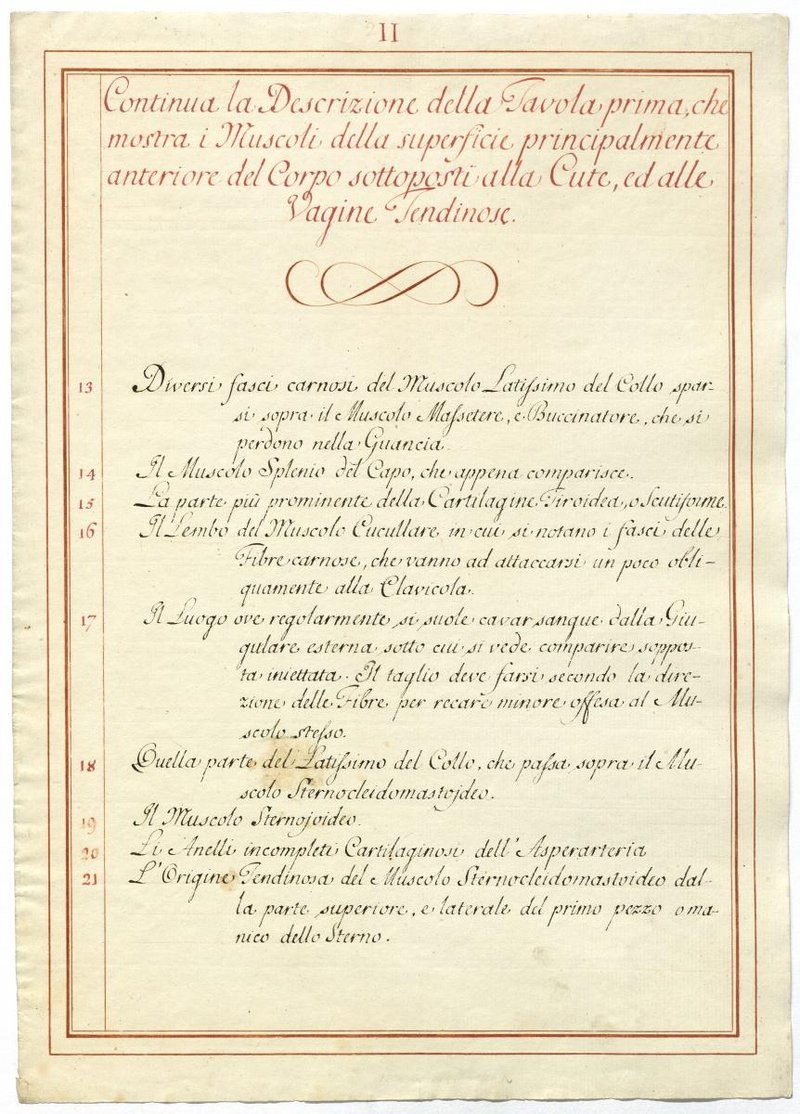 II
Continua la Descrizione della Tavola prima, che
mostra i Muscoli della superficie principalmente
anteriore del Corpo sottoposti alla Cute, ed alle
Vagine Tendinose.
13 Diversi fasci carnosi del Muscolo Latissimo del Collo spar-
si sopra il Muscolo Massetere, e Buccinatore, che si
perdono nella Guancia.
14 Il Muscolo Splenio del Capo, che appena comparisce.
15 La parte più prominente della Cartilagine Tiroidea, o Scutiforme
16 Il Lembo del Muscolo Cucullare in cui si notano i fasci delle
Fibre carnose, che vanno ad attaccarsi un poco obli-
quamente alla Clavicola.
17 Il Luogo ove regolarmente si suole cavar sangue dalla Giu-
gulare esterna sotto cui si vede comparire soppos-
ta iniettata. Il taglio deve farsi secondo la dire-
zione delle Fibre per recare minore offesa al Mu-
scolo stesso.
18 Quella parte del Latissimo del Collo, che passa sopra il Mu-
scolo Sternocleidomastojdeo.
19 Il Muscolo Sternojoideo.
20 Li Anelli incompleti Cartilaginosi dell'Asperarteria
21 L'Origine Tendinosa del Muscolo Sternocleidomastoideo dal-
la parte superiore, e laterale del primo pezzo o ma-
nico dello Sterno.